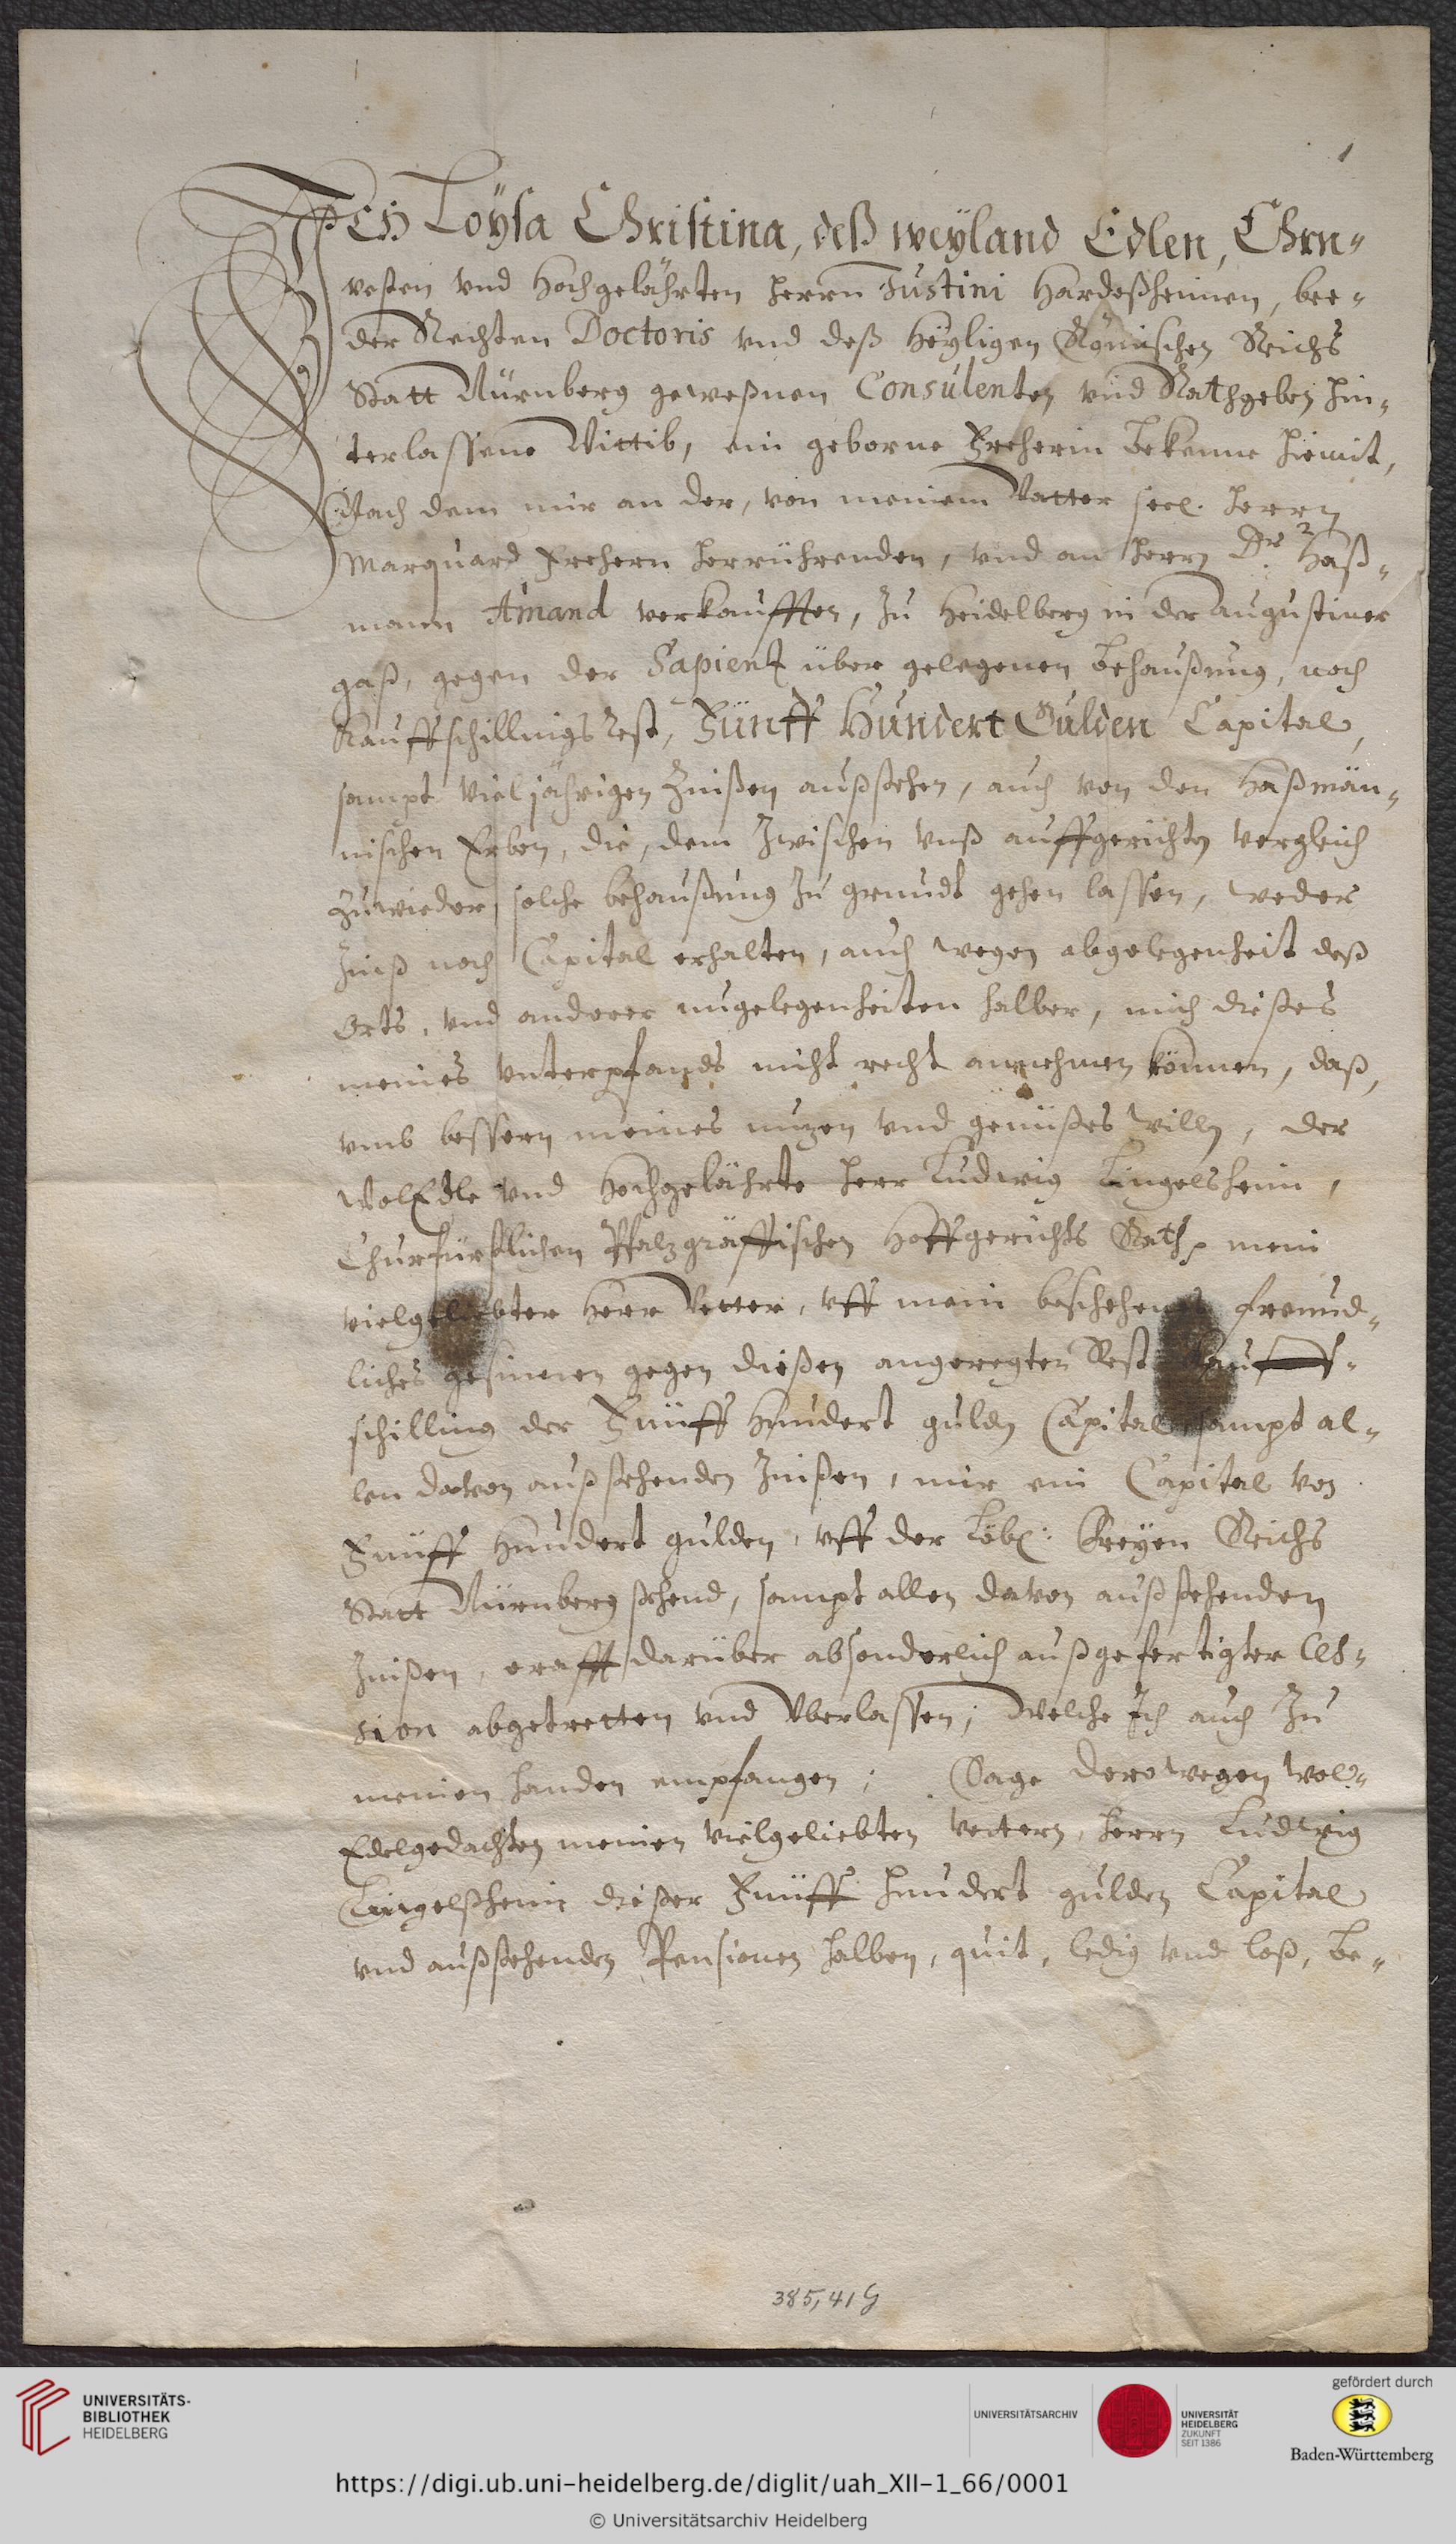 1
Ich Loÿsa Christina, deß weÿland Edlen, Ehrn-
vesten vnd Hochgelährten Herrn Justini Hardeßheimen, bee-
der Rechten Doctoris vnd deß Heÿligen Römischen Reichs
Statt Nürnberg geweßnen Consulenten vnd Rathgeben hin-
terlassene Wittib, ein geborne Freherin Bekenne hiemit,
Nach dem mir an der, von meinem Vatter seel. Herrn
Marquard Frehern herrührenden, vnd an Herrn Dr. Haß-
mann Amand verkaufften, zu Heidelberg in der Augustiner
gaß, gegen der Sapientz über gelegenen Behaußung, noch
Kauffschillings Rest, Fünff Hundert Gulden Capital,
sampt vieljährigen Zinßen außstehen, auch von den Haßmän-
nischen Erben, die, dem zwischen vnß auffgerichten vergleich
zuwieder, solche behaußung zu grundt gehen lassen, weder
Zinß noch Capital erhalten, auch wegen abgelegenheit deß
Orts, vnd anderer ungelegenheiten halber, mich dießes
meines vnterpfands nicht recht annehmen können, daß,
vmb bessern meines nuzen vnd genüßes willn, der
WolEdle vnd Hochgelährte Herr Ludwig Lingelsheim,
Churfürstlichen Pfalzgräffischen Hoffgerichts Rath, mein
vielgeliebter Herr Vetter, vff mein beschehenes freund-
liches gesinnen gegen dießen angeregten Rest Kauff-
schilling der Fünff Hundert gulden Capital, sampt al-
len davon außstehenden Zinßen, mir ein Capital von
Fünff Hundert gulden, vff der Löbl: Freÿen Reichs
Statt Nürnberg stehend, sampt allen davon außstehenden
Zinßen, crafft darüber absonderlich außgefertigter Ces-
sion abgetretten vnd Vberlassen; Welche Ich auch zu
meinen handen empfangen; Sage derowegen Wol-
Edelgedachten meinen vielgeliebten Vettern, Herrn Ludwig
Lingelßheim dießer Fünff Hundert gulden Capital
vnd außstehenden Pensionen halben, quit, ledig vnd loß, Be-
385,41 G
UNIVERSITÄTS-
BIBLIOTHEK
HEIDELBERG
UNIVERSITÄTSARCHIV
UNIVERSITÄT
HEIDELBERG
ZUKUNFT
SEIT 1386
gefördert durch
Baden-Württemberg
https://digi.ub.uni-heidelberg.de/diglit/uah_XII-1_66/0001
© Universitätsarchiv Heidelberg